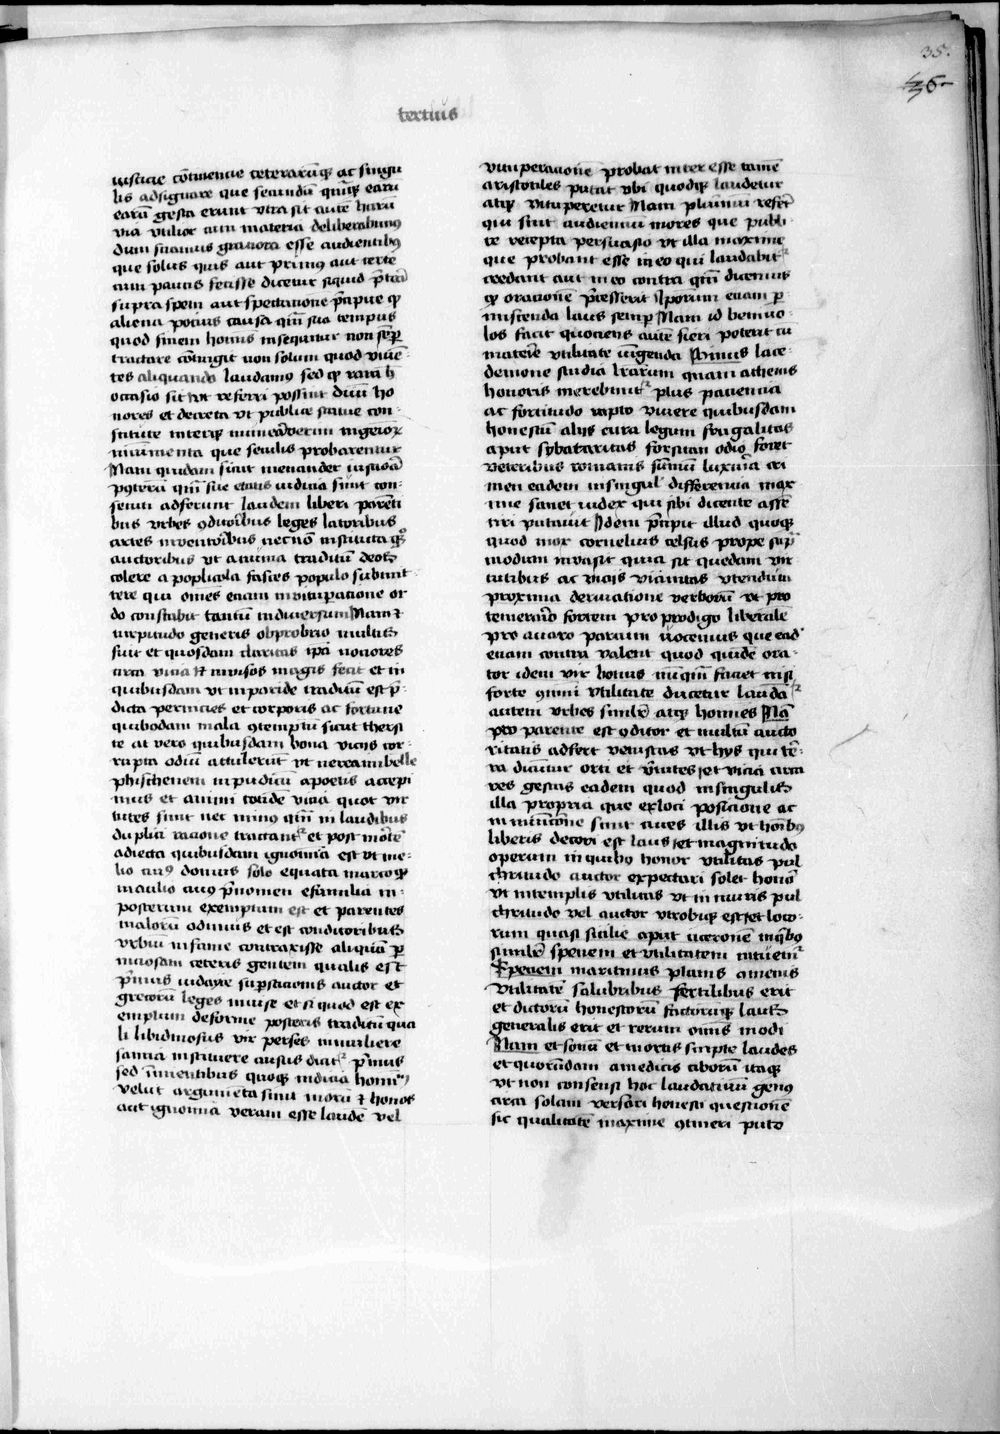 35.
36
tertius
iusticie cōtinencie ceterarūq; ac singu
lis adsignare que secundū quāq; earū
earū gesta erunt vtra sit autē harū
via vtilior cum materia deliberabimus
dum sciamus graciora esse audientibus
que solus quis aut primus aut certe
cum paucis fecisse dicetur siquid p̄terea
supra spem aut spectacionē p̄cipue q̄
aliena pocius causa q̄m sua tempus
quod finem hominis insequitur non semp̄
tractare cōtingit non solum quod viuē-
tes aliquando laudamus sed q̄ rara h̄
occasio sit vt referri possint diuini ho
nores et decreta vt publice statue con-
stitute interq; numerauerim ingeniorum
monimenta que seculis probarentur
Nam quidam sicut menander iusticia
posterorū q̄m sue etatis iudicia sunt con-
secuti adferunt laudem liberi parenti
bus vrbes conditoribus leges latoribus
artes inuentoribus necnō instituta q̄q;
auctoribus vt a numa traditū deos
colere a poplicola fasces populo submit
tere qui omnes eciam in vituperacione or
do constabit tantū in diuersum Nam et
turpitudo generis obprobrio multis
fuit et quosdam claritas ipsa nociores
circa vicia et inuisos magis fecit et in
quibusdam vt in paride traditū est p̄-
dicta pernicies et corporis ac fortune
quibusdam mala contemptū sicut thersi
te at vero quibusdam bona viciis cor-
rupta odiū attulerūt vt nereum imbelle
phischenem impudicū a poetis accepi
mus et animi totidē vicia quot vir
tutes sunt nec minus q̄m in laudibus
duplici racione tractantur et post mortē
adiecta quibusdam ignominia est vt me-
lio cuius domus solo equata marcoq;
manlio cuius p̄nomen e familia in
posterum exemptum est et parentes
malorū odimus et est conditoribus
vrbiū infame contraxisse aliquā p̄
niciosam ceteris gentem qualis est
p̄mus iudaice sup̄sticionis auctor et
grecorū leges inuise et si quod est ex
emplum deforme posteris traditū qua
li libidinosus vir perses in muliere
samia instituere ausus dicitur p̄mus
sed in viuentibus quoq; iudicia hominum
velut argumēta sunt morū et honos
aut ignominia veram esse laudē vel
vituperacionē probat inter esse tamē
aristotiles putat vbi quodq; laudetur
atq; vituperetur Nam plurimū refert
qui sint audiencium mores que publi-
ce recepta persuasio vt illa maxime
que probant esse in eo qui laudabitur
credant aut in eo contra q̄m dicemus
q̄ oracionē p̄cesserit Ip̄orum eciam p̄
miscenda laus semp̄ Nam id beniuo-
los facit quociens autē fieri poterit cū
materie vtilitate iungenda Minus lace-
demone studia lrārum quam athenis
honoris merebuntur plus paciencia
ac fortitudo rapto viuere quibusdam
honestū aliis cura legum frugalitas
aput sybataritas forsitan odio foret
veteribus romanis summū luxuria cri
men eadem in singul' differencia max-
ime fauet iudex qui sibi dicente assē
tiri putauit Idem p̄cipit illud quoq;
quod mox cornelius celsus prope sup̄
modum inuasit quia sit quedam vir
tutibus ac viciis vicinitas vtendum
proxima deriuacione verborū vt pro
temerario fortem pro prodigo liberalē
pro auaro parcum vocemus que eadē
eciam contra valent quod quidē ora-
tor idem vir bonus nūquam faciet nisi
forte communi vtilitate ducetur laudātur
autem vrbes similiter atq; homines Nā
pro parente est conditor et multū aucto
ritatis adfert vetustas vt hys qui ter-
ra dicuntur orti et virtutes et vicia circa
res gestas eadem quod in singulis
illa propria que ex loci posicione ac
municione sunt ciues illis vt hominibus
liberis decori est laus et magnitudo
operum in quibus honor vtilitas pul
chritudo auctor expectari solet honor
vt in templis vtilitas vt in muris pul
chritudo vel auctor vtrobiq; est et loco-
rum quasi sicilie aput ciceronē in quibus
similiter speciem et vtilitatem intuemur
Speciem maritimis planis amenis
vtilitatē salubribus fertilibus erit
et dictorū honestorū factorūq; laus
generalis erit et rerum omnis modi
Nam et somni et mortis scripte laudes
et quorūdam a medicis ciborū itaq;
vt non consensi hoc laudatiuū genus
circa solam versari honesti questionē
sic qualitatē maxime contineri puto